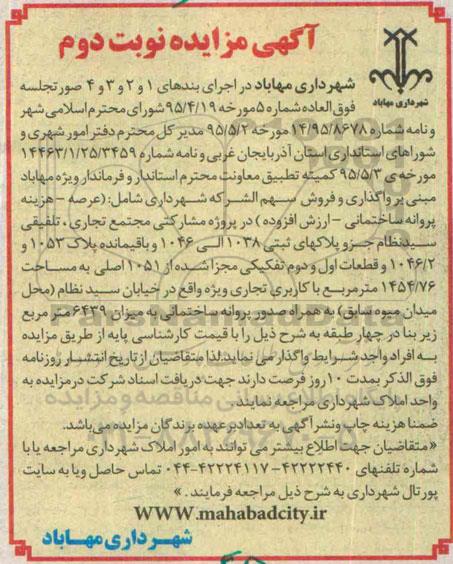 آگهی مزایده نوبت دوم
شهرداری مهاباد
شهرداری مهاباد در اجرای بندهای ۱ و ۲ و ۳ و ۴ صورتجلسه
فوق العاده شماره ۵ مورخه ۹۵/۴/۱۹ شورای محترم اسلامی شهر
و نامه شماره ۱۴/۹۵/۸۶۷۸ مورخه ۹۵/۵/۲ مدیر کل محترم دفتر امور شهری و
شوراهای استانداری استان آذربایجان غربی و نامه شماره ۱۴۴۶۳/۱/۲۵/۳۴۵۹
مورخه ی ۹۵/۵/۳ کمیته تطبیق معاونت محترم استاندار و فرماندار ویژه مهاباد
مبنی بر واگذاری و فروش سهم الشرکه شهرداری شامل: (عرصه - هزینه
پروانه ساختمانی - ارزش افزوده) در پروژه مشارکتی مجتمع تجاری، تلفیقی
سیدنظام جزو پلاکهای ثبتی ۱۰۳۸ الی ۱۰۴۶ و باقیمانده پلاک ۱۰۵۳ و
۱۰۴۶/۲ و قطعات اول و دوم تفکیکی مجزا شده از ۱۰۵۱ اصلی به مساحت
۱۴۵۴/۷۶ مترمربع با کاربری تجاری ویژه واقع در خیابان سید نظام (محل
میدان میوه سابق) به همراه صدور پروانه ساختمانی به میزان ۶۴۳۹ متر مربع
زیر بنا در چهار طبقه به شرح ذیل را با قیمت کارشناسی پایه از طریق مزایده
به افراد واجد شرایط واگذار می نماید لذا متقاضیان از تاریخ انتشار روزنامه
فوق الذکر بمدت ۱۰ روز فرصت دارند جهت دریافت اسناد شرکت در مزایده به
واحد املاک شهرداری مراجعه نمایند.
ضمنا هزینه چاپ و نشر آگهی به تعداد بر عهده برندگان مزایده می باشد.
« متقاضیان جهت اطلاع بیشتر می توانند به امور املاک شهرداری مراجعه یا با
شماره تلفنهای ۴۲۲۲۲۴۴۰-۴۲۲۲۴۱۱۷-۰۴۴ تماس حاصل و یا به سایت
پورتال شهرداری به شرح ذیل مراجعه فرمایند. »
WWW.mahabadcity.ir
شهرداری مهاباد